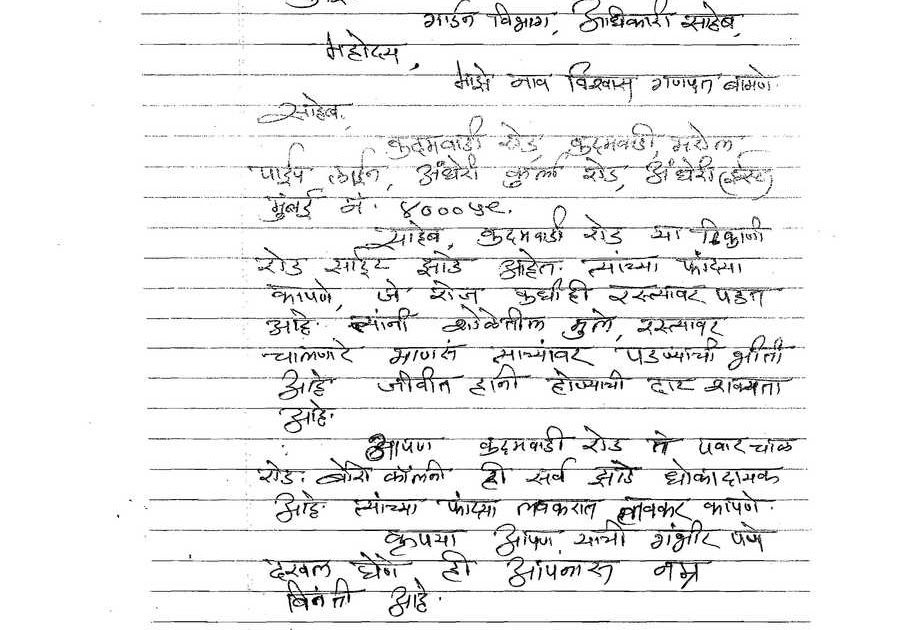 गार्डन विभाग, अधिकारी साहेब,
महोदय,
माझे नाव विश्वास गणपत बामणे.
साहेब,
कदमवाडी रोड, कदमवाडी, मरोल
पाईप लाईन, अंधेरी कुर्ला रोड, अंधेरी (ईस्ट)
मुंबई नं. ४०००५९.
साहेब, कदमवाडी रोड या ठिकाणी
रोड साईट झाडे आहेत. त्यांच्या फांद्या
कापणे, जे रोज कधीही रस्त्यावर पडत
आहे. त्यांनी शाळेतील मुले, रस्त्यावर
चालणारे माणसं त्यांच्यांवर पडण्याची भीती
आहे जीवीत हानी होण्याची दाट शक्यता
आहे.
आपण कदमवाडी रोड ते पवार चाळ
रोड. बोरी कॉलनी ही सर्व झाडे धोकादायक
आहे. त्यांच्या फांद्या लवकरात लवकर कापणे.
कृपया आपण याची गंभीर पणे
दखल घेणे ही आपनास नम्र
विनंती आहे.